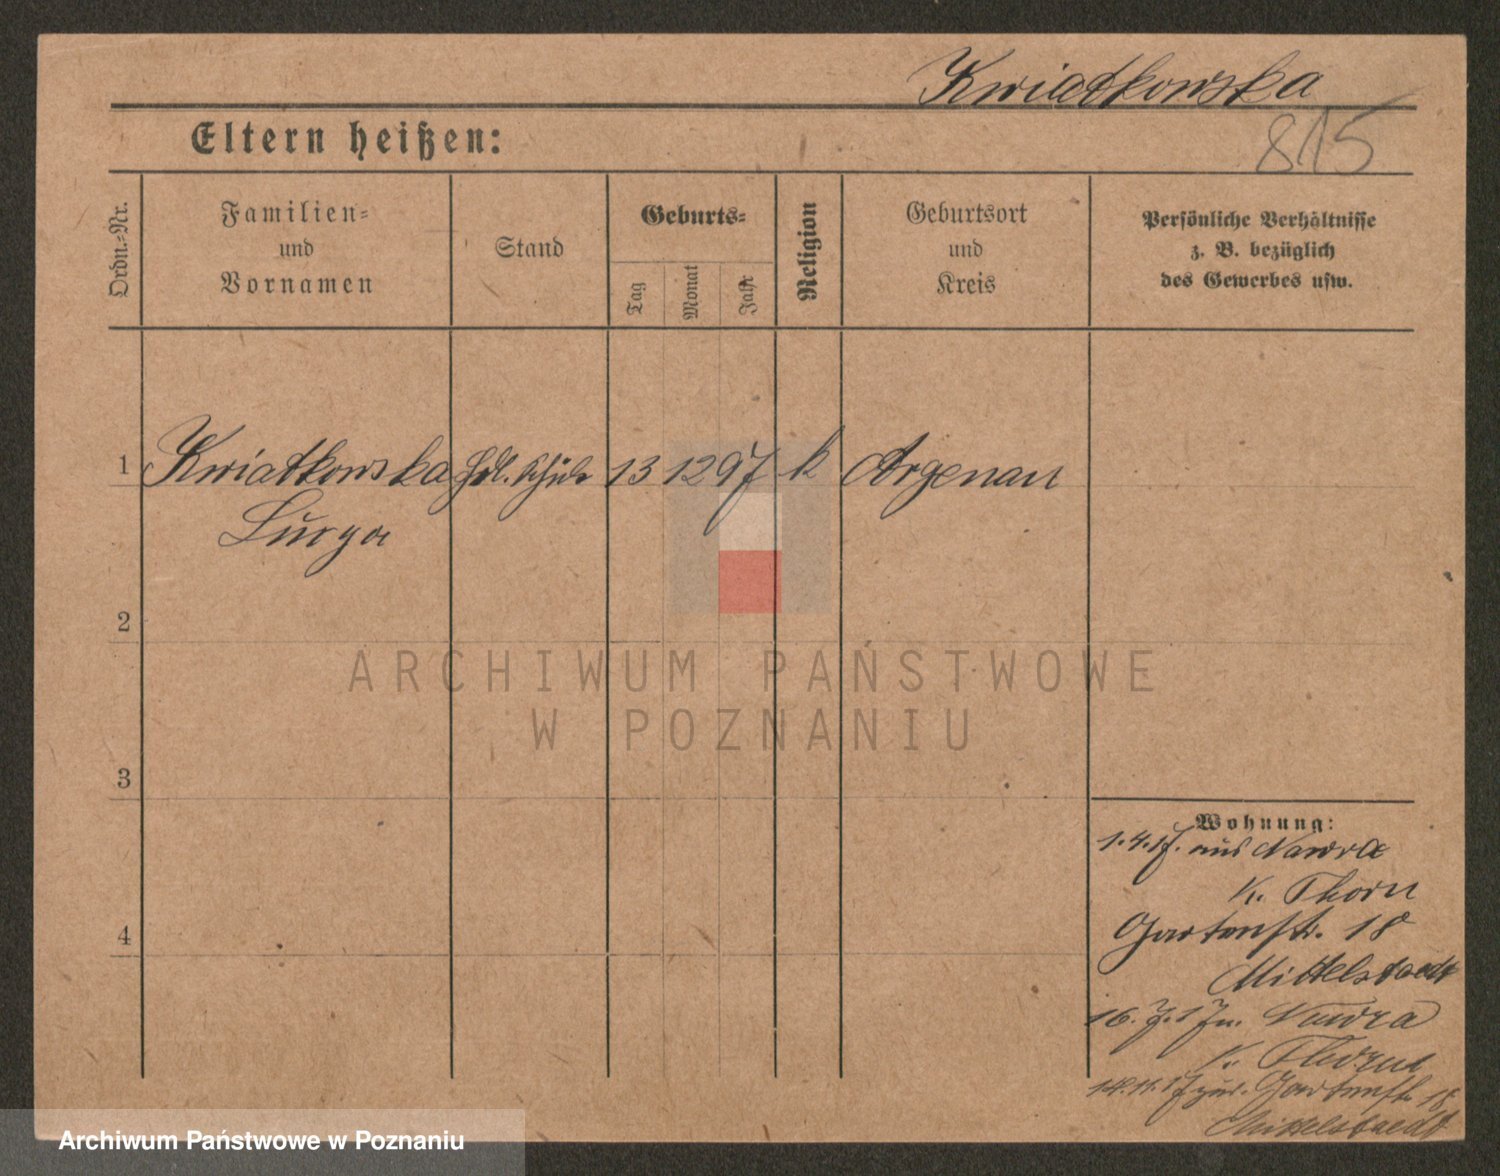 Kwiatkowska
815
Eltern heißen:
Ordn.=Nr.
Familien=
und
Vornamen
Stand
Geburts=
Tag
Monat
Jahr
Religion
Geburtsort
und
Kreis
Persönliche Verhältnisse
z. B. bezüglich
des Gewerbes usw.
1 Kwiatkowska Hdl. 13 12 97 k Argenau
2
3
4
Wohnung:
1.4.17. aus Nawra
K. Thorn
Gartenstr. 18
Mittelstaedt
16.7.17 n. Nawra
K. Thorn
14.11.17 zur. Gartenstr. 18
Mittelstaedt
ARCHIWUM PAŃSTWOWE
W POZNANIU
Archiwum Państwowe w Poznaniu